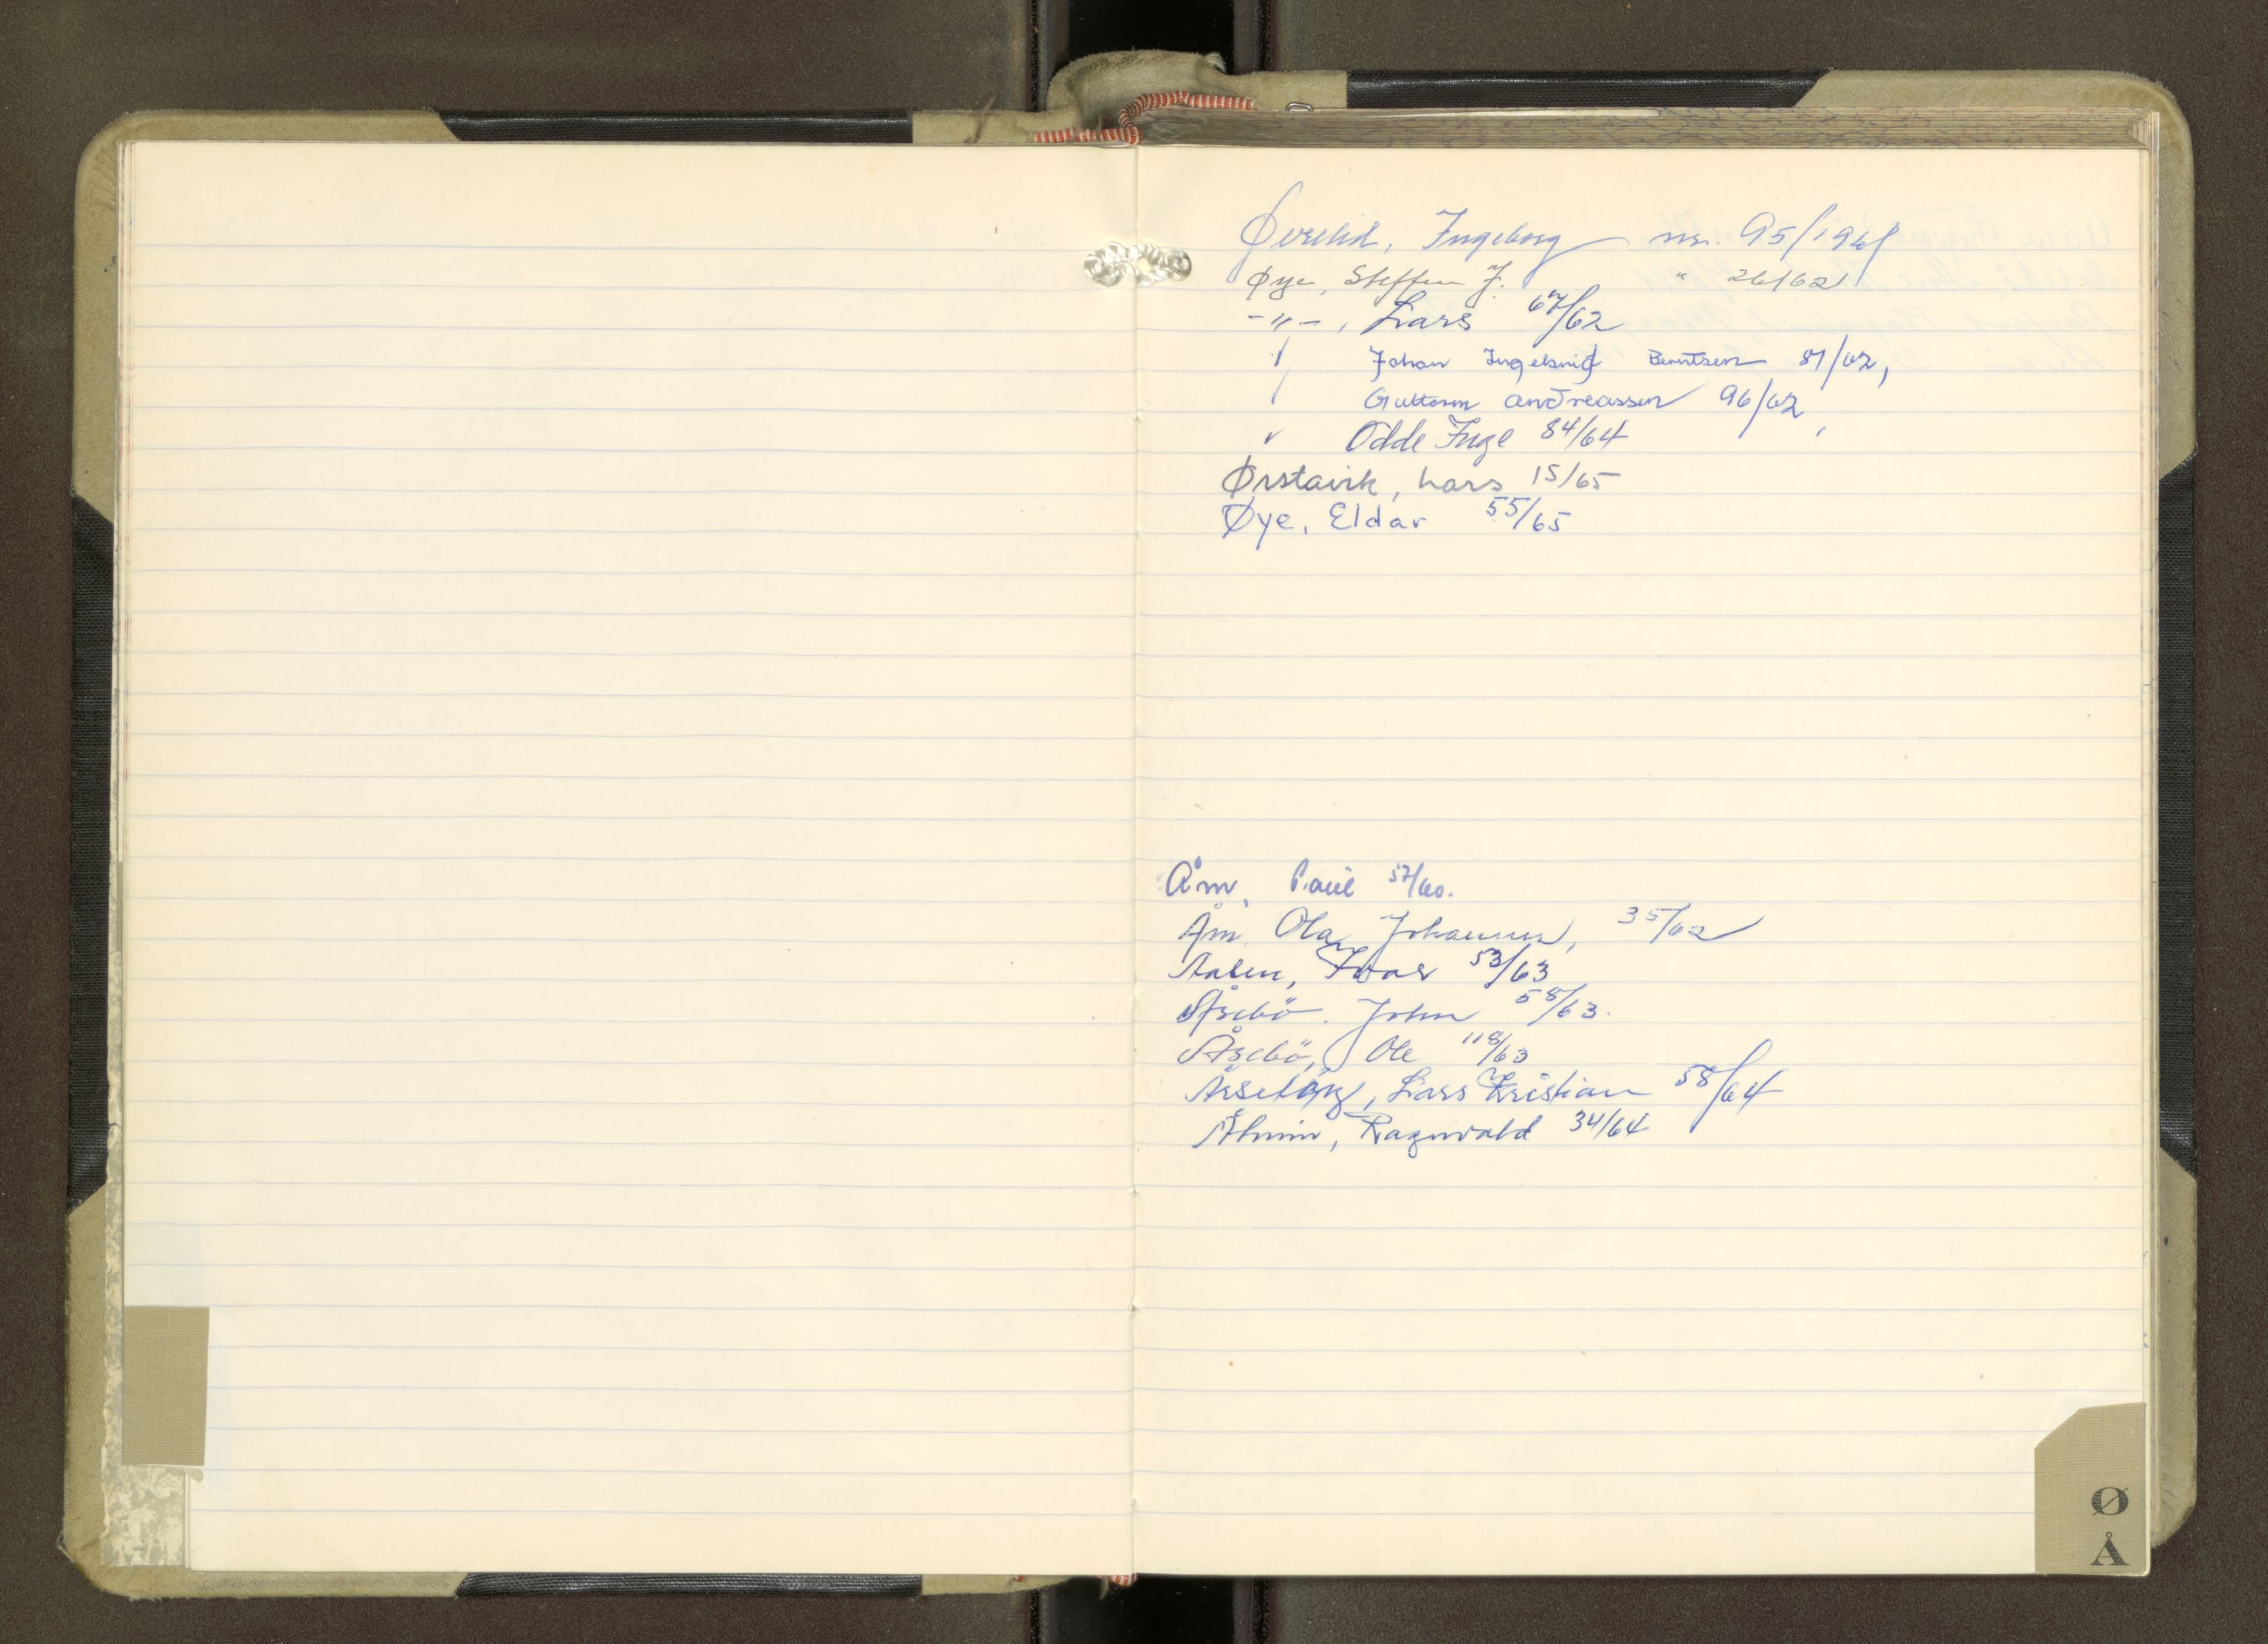 Øvrelid, Ingeborg nr. 95/1961
Øye, Steffen J. " 26/62
-"-, Lars 67/62
" Johan Ingebrigt Berntsen 87/62,
" Guttorm Andreassen 96/62,
" Odde Inge 84/64
Ørstavik, Lars 15/65
Øye, Eldar 55/65
Åm, Paul 57/60.
Åm Ola Johannes, 35/62
Aasen, Ivar 53/63
Åsebö. John 58/63.
Åsebö, Ole 118/63
Lars Kristian 58/64
Ragnvald 34/64
Ø
Å